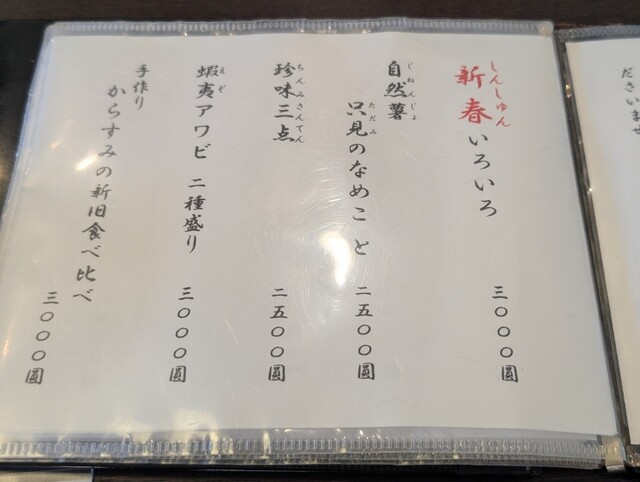 新春いろいろ 三〇〇〇圓
しんしゅん
自然薯
じねんじょ
只見のなめこ と 二五〇〇圓
ただみ
珍味三点 二五〇〇圓
ちんみさんてん
蝦夷アワビ 二種盛り 三〇〇〇圓
えぞ
手作り
からすみの新旧食べ比べ
三〇〇〇圓
ださいませ